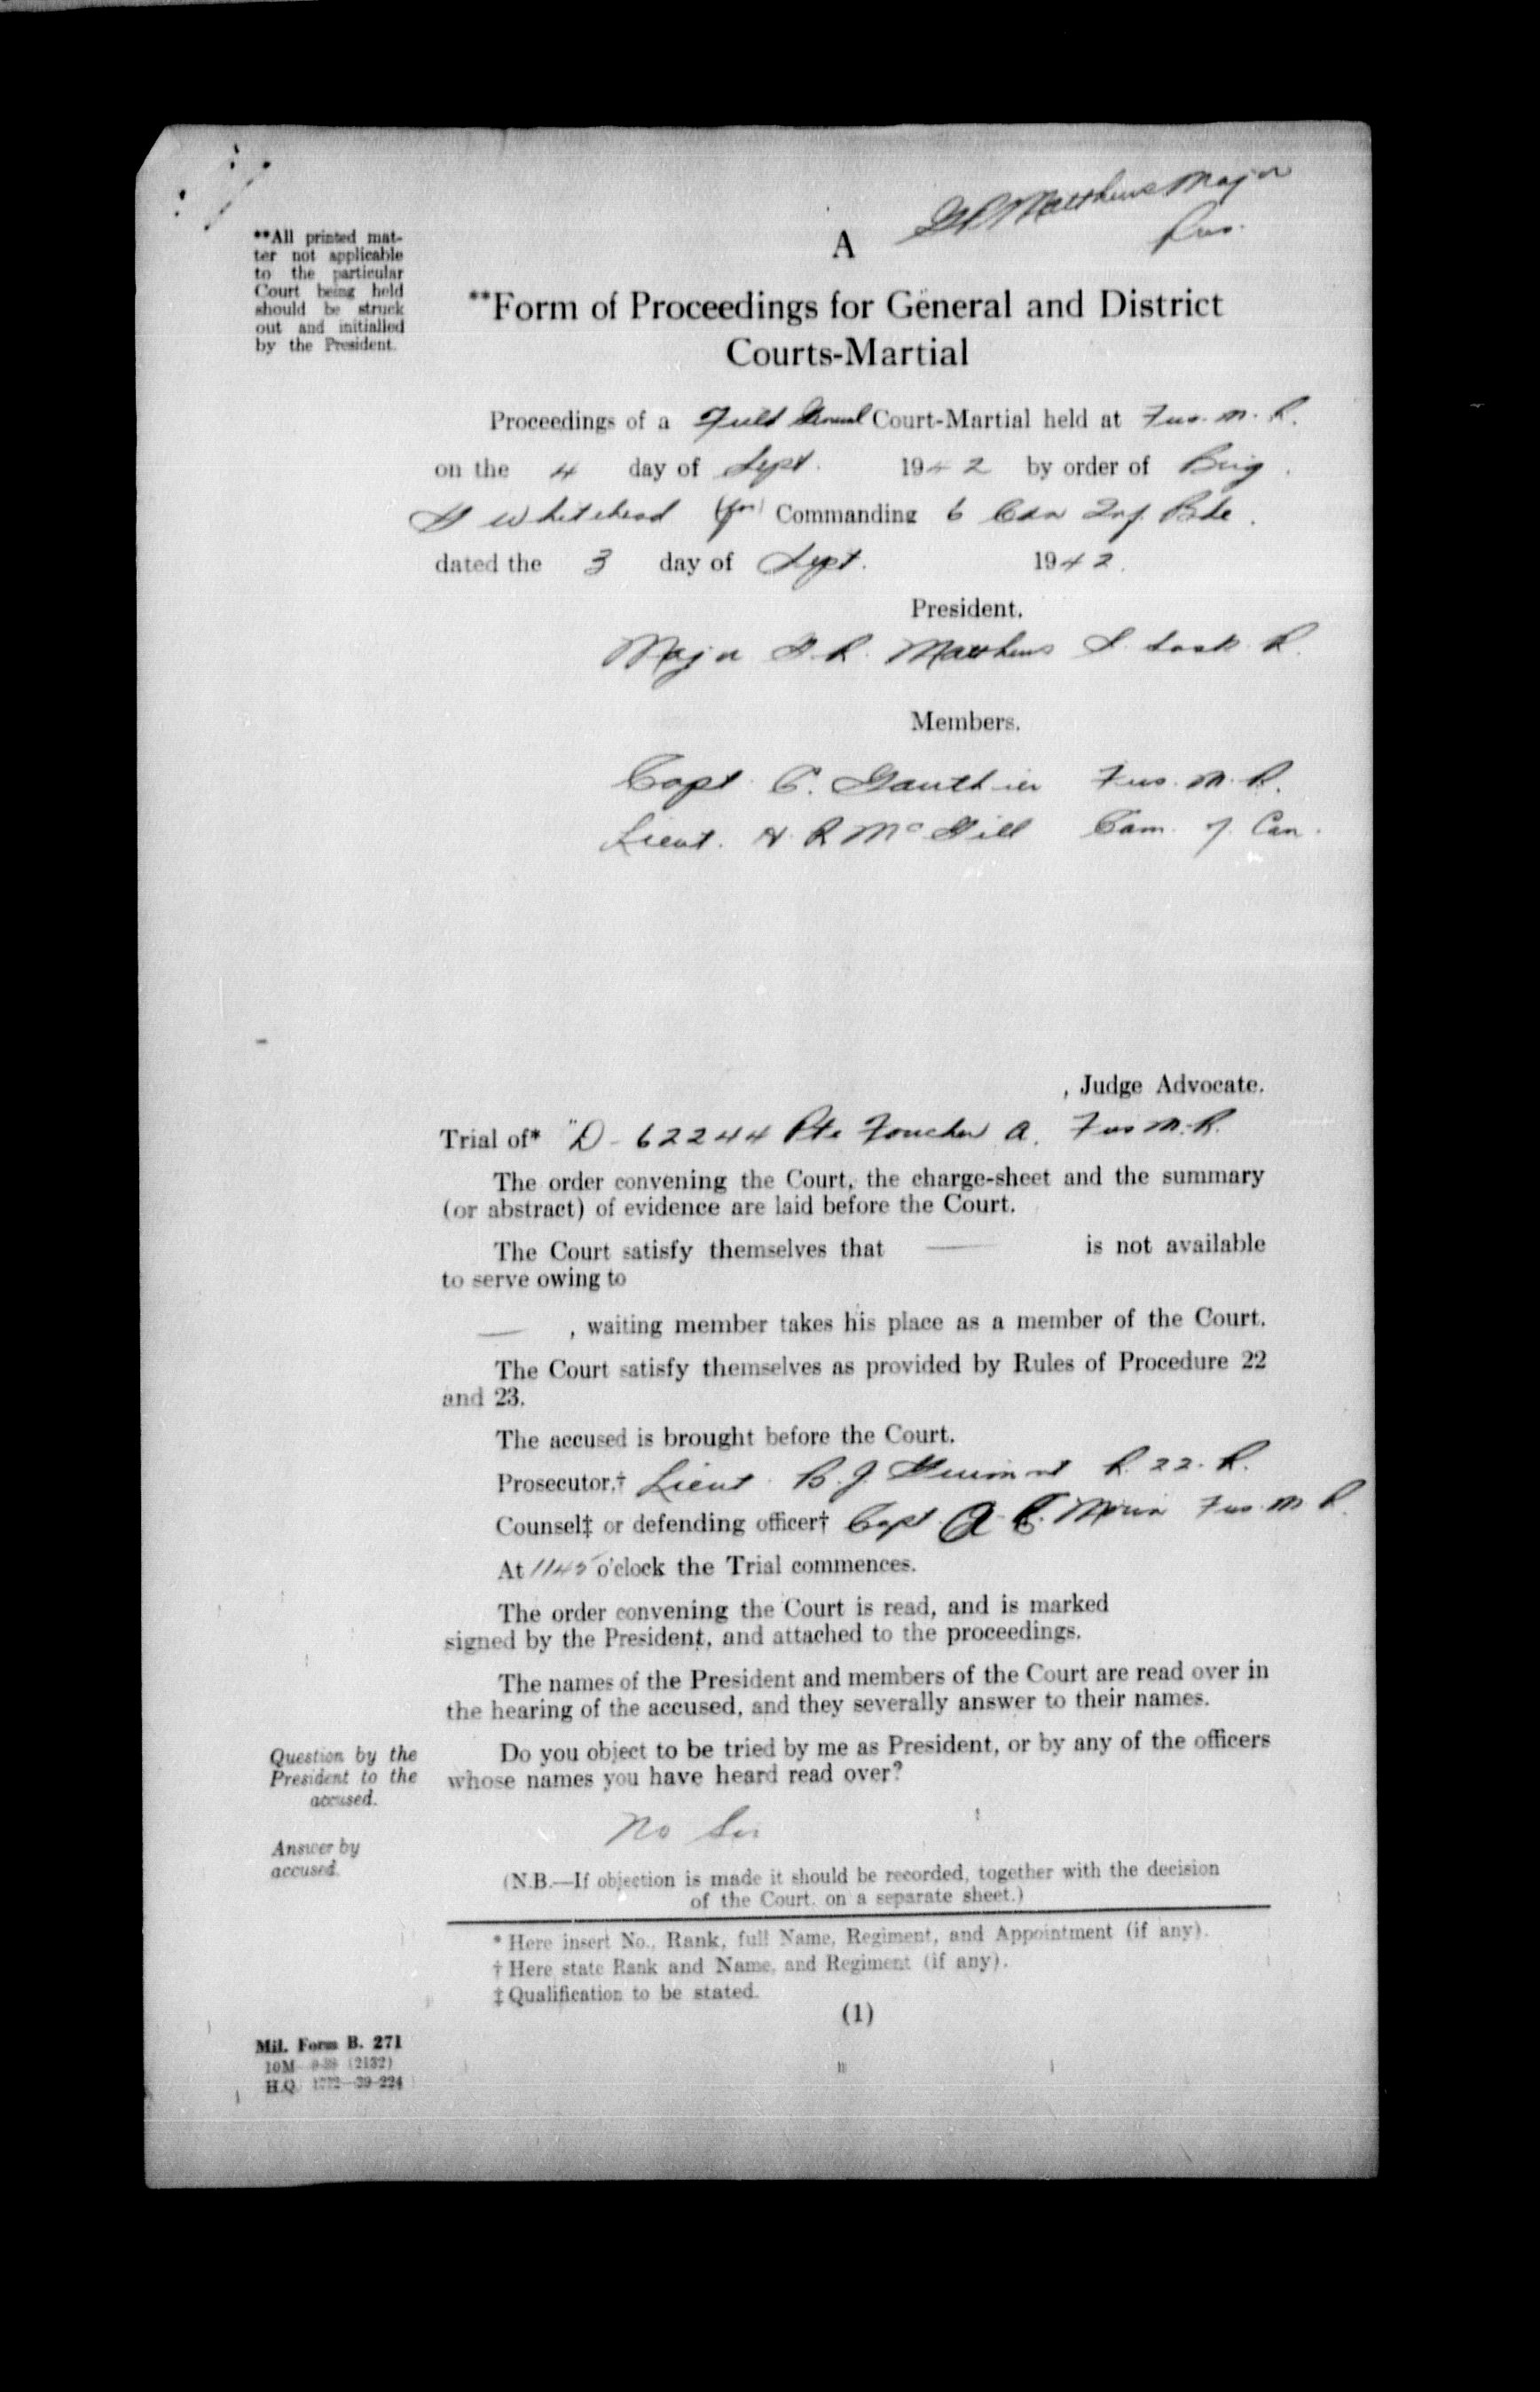 G R Matthews Major
Pres.
**All printed mat-
ter not applicable
to the particular
Court being held
should be struck
out and initialled
by the President.
A
**Form of Proceedings for General and District
Courts-Martial
Proceedings of a Field General Court-Martial held at Fus. M. R.
on the 4 day of Sept. 1942 by order of Brig.
G Whitehead Commanding 6 Cdn Inf. Bde.
dated the 3 day of Sept. 1942.
President.
Major G. R. Matthews S. Sask. R.
Members.
Capt. C. Gauthier Fus. M. R.
Lieut. H. R McGill Cam. of Can.
, Judge Advocate.
Trial of* "D-62244 Pte Foucher A. Fus M. R.
The order convening the Court, the charge-sheet and the summary
(or abstract) of evidence are laid before the Court.
The Court satisfy themselves that — is not available
to serve owing to
— , waiting member takes his place as a member of the Court.
The Court satisfy themselves as provided by Rules of Procedure 22
and 23.
The accused is brought before the Court.
Prosecutor,† Lieut. B. J. R. 22. R.
Counsel‡ or defending officer† Capt. A. C. Morin Fus. M R.
At 1145 o'clock the Trial commences.
The order convening the Court is read, and is marked
signed by the President, and attached to the proceedings.
The names of the President and members of the Court are read over in
the hearing of the accused, and they severally answer to their names.
Question by the
President to the
accused.
Do you object to be tried by me as President, or by any of the officers
whose names you have heard read over?
No Sir
Answer by
accused.
(N.B.—If objection is made it should be recorded, together with the decision
of the Court, on a separate sheet.)
* Here insert No., Rank, full Name, Regiment, and Appointment (if any).
† Here state Rank and Name, and Regiment (if any).
‡ Qualification to be stated.
(1)
Mil. Form B. 271
10M (2132)
H.Q. 1772—39-224